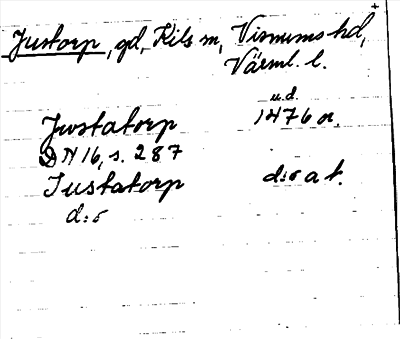 Justorp, gd, Kils sn, Visnums hd,
Värml. l.
Jwstatorp u.d. 1476 or.
DN 16, s. 287
Iustatorp d:o a t.
d:o